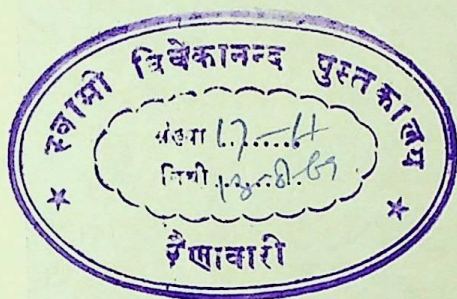 स्वामी विवेकानन्द पुस्तकालय
संख्या 17-H
तिथी
रैणावारी